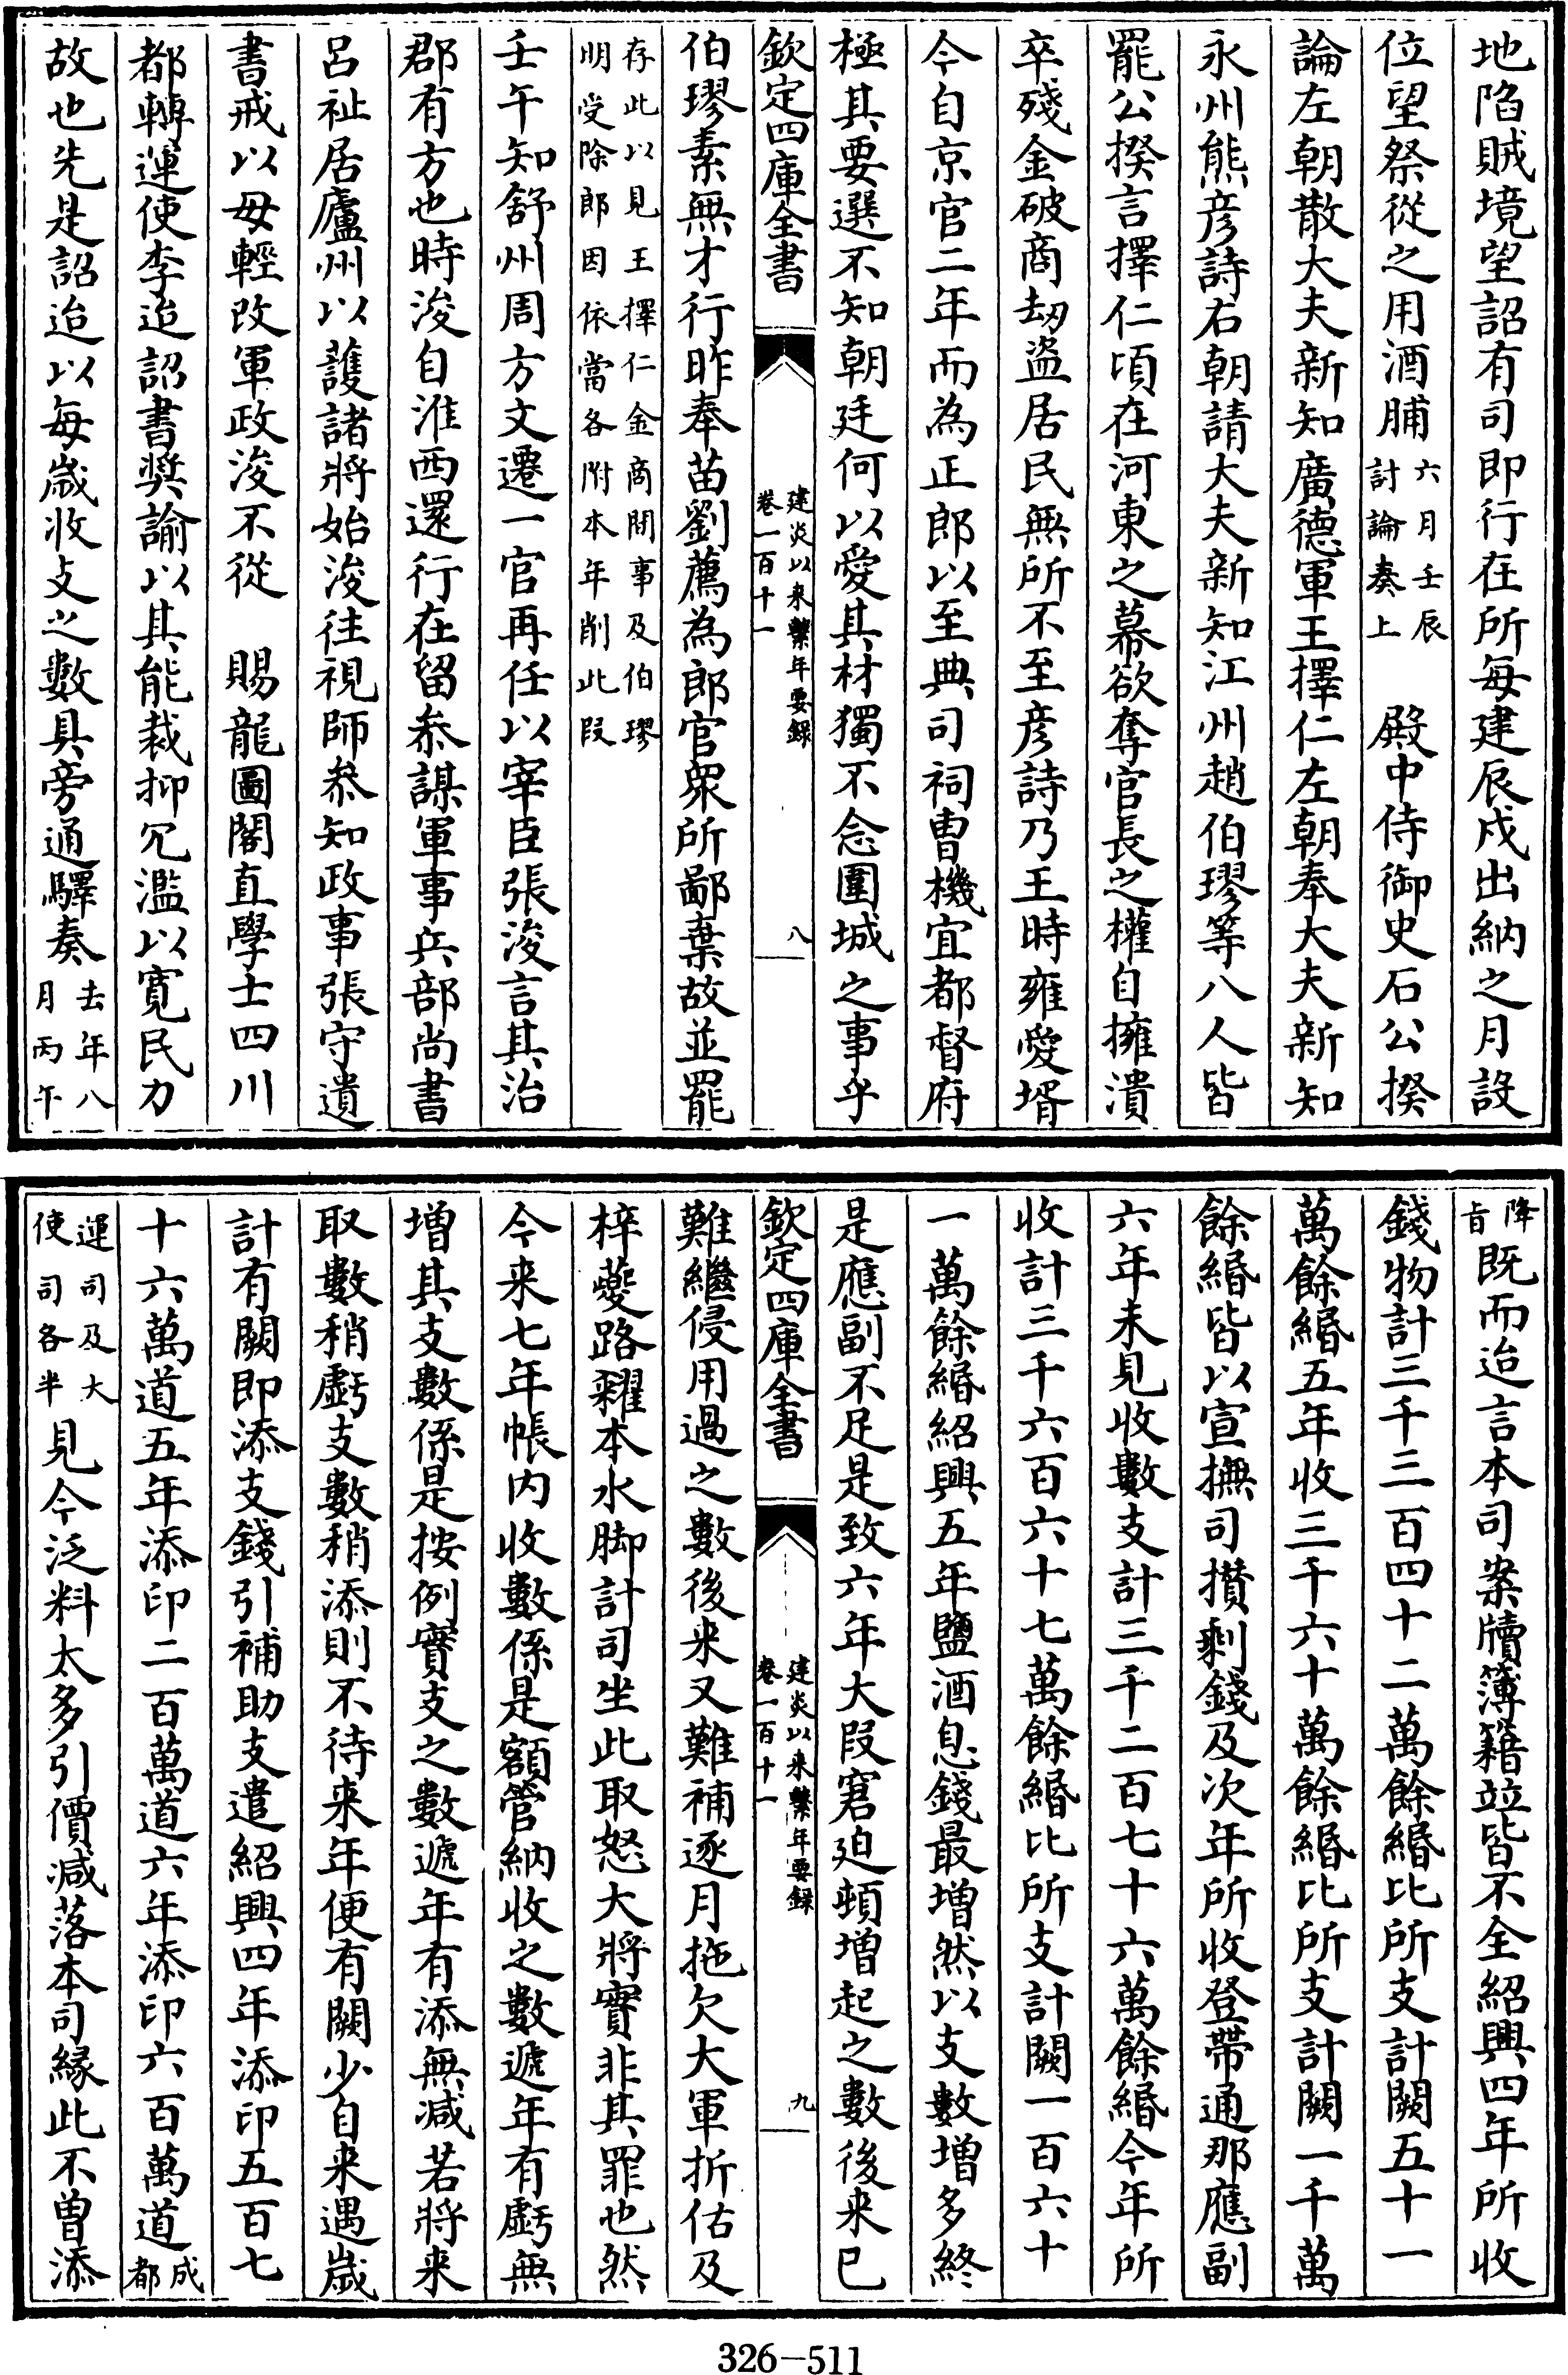 地陷賊境望詔有司即行在所每建辰戌出納之月設
位望祭從之用酒脯六月壬辰計論奏上　殿中侍御史石公揆
論左朝散大夫新知廣德軍王擇仁左朝奉大夫新知
永州熊彦詩右朝請大夫新知江州趙伯璆等八人皆
罷公揆言擇仁頃在河東之幕欲奪官長之權自擁潰
卒殘金破商刼盗居民無所不至彦詩乃王時雍愛壻
今自京官二年而為正郎以至典司祠曹機宜都督府
極其要選不知朝廷何以愛其材獨不念圍城之事乎
欽定四庫全書　建炎以來繫年要録　卷一百十一　八
伯璆素無才行昨奉苗劉薦為郎官衆所鄙棄故並罷
存此以見王擇仁金商間事及伯璆
明受除郎因依當各附本年削此段
壬午知舒州周方文遷一官再任以宰臣張浚言其治
郡有方也時浚自淮西還行在留叅謀軍事兵部尚書
呂祉居廬州以䕶諸將始浚往視師叅知政事張守遺
書戒以毋輕改軍政浚不從　賜龍圖閣直學士四川
都轉運使李迨詔書奬諭以其能裁抑冗濫以寛民力
故也先是詔迨以每歳收支之數具旁通驛奏去年八月丙午
降旨既而迨言本司案牘簿籍竝皆不全紹興四年所收
錢物計三千三百四十二萬餘緡比所支計闕五十一
萬餘緡五年收三千六十萬餘緡比所支計闕一千萬
餘緡皆以宣撫司攢剩錢及次年所收登帶通那應副
六年未見收數支計三千二百七十六萬餘緡今年所
收計三千六百六十七萬餘緡比所支計闕一百六十
一萬餘緡紹興五年鹽酒息錢最増然以支數増多終
是應副不足是致六年大段窘廹頓増起之數後來已
欽定四庫全書　建炎以來繫年要録　卷一百十一　九
難繼侵用過之數後来又難補逐月拖欠大軍折估及
梓夔路糴本水脚計司坐此取怒大將實非其罪也然
今来七年帳内收數係是額管納收之數遞年有虧無
増其支數係是按例實支之數遞年有添無減若將来
取數稍虧支數稍添則不待来年便有闕少自来遇歳
計有闕即添支錢引補助支遣紹興四年添印五百七
十六萬道五年添印二百萬道六年添印六百萬道成都
運司及大使司各半見今泛料太多引價減落本司縁此不曽添
326-511